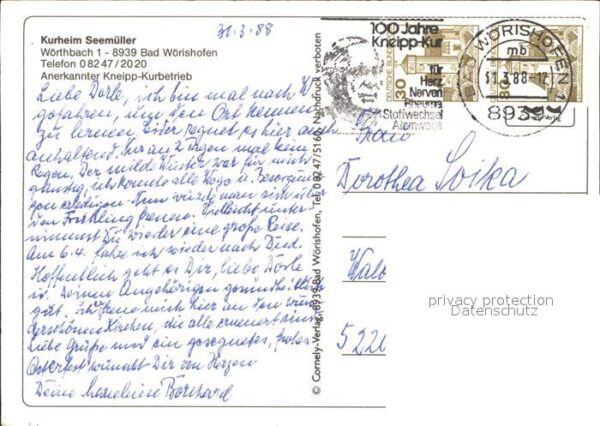 31.3.88
Kurheim Seemüller
Wörthbach 1 - 8939 Bad Wörishofen
Telefon 0 82 47 / 20 20
Anerkannter Kneipp-Kurbetrieb
Liebe Dorle, ich bin mal nach W.
gefahren, um den Ort kennen
zu lernen. Leider regnet es hier auch
anhaltend. Nur an 2 Tagen mal kein
Regen. Der milde Winter war für mich
günstig, ich konnte alle Wege u. Besorgun
gen erledigen. Nun würde man sich über
den Frühling freuen. Vielleicht unter
nimmst Du wieder eine große Reise.
Am 6.4. fahre ich wieder nach
Hoffentlich geht es Dir, liebe Dorle
u. Deinen Angehörigen gesundheitlich
gut. Ich freue mich hier an den wun
derschönen Kirchen, die alle erneuert sind.
Liebe Grüße und ein gesegnetes, frohes
Osterfest wünscht Dir von Herzen
Deine Borchard
© Cornely-Verlag, 8939 Bad Wörishofen, Tel. 0 82 47/5160, Nachdruck verboten
100 Jahre
Kneipp-Kur
für
Herz
Nerven
Rheuma
Stoffwechsel
Atemwege
30
DEUTSCHE BUNDESPOST
30
WÖRISHOFEN 1
mb
31.3.88-12
8939
Frau
Dorothea Soika
522
privacy protection
Datenschutz